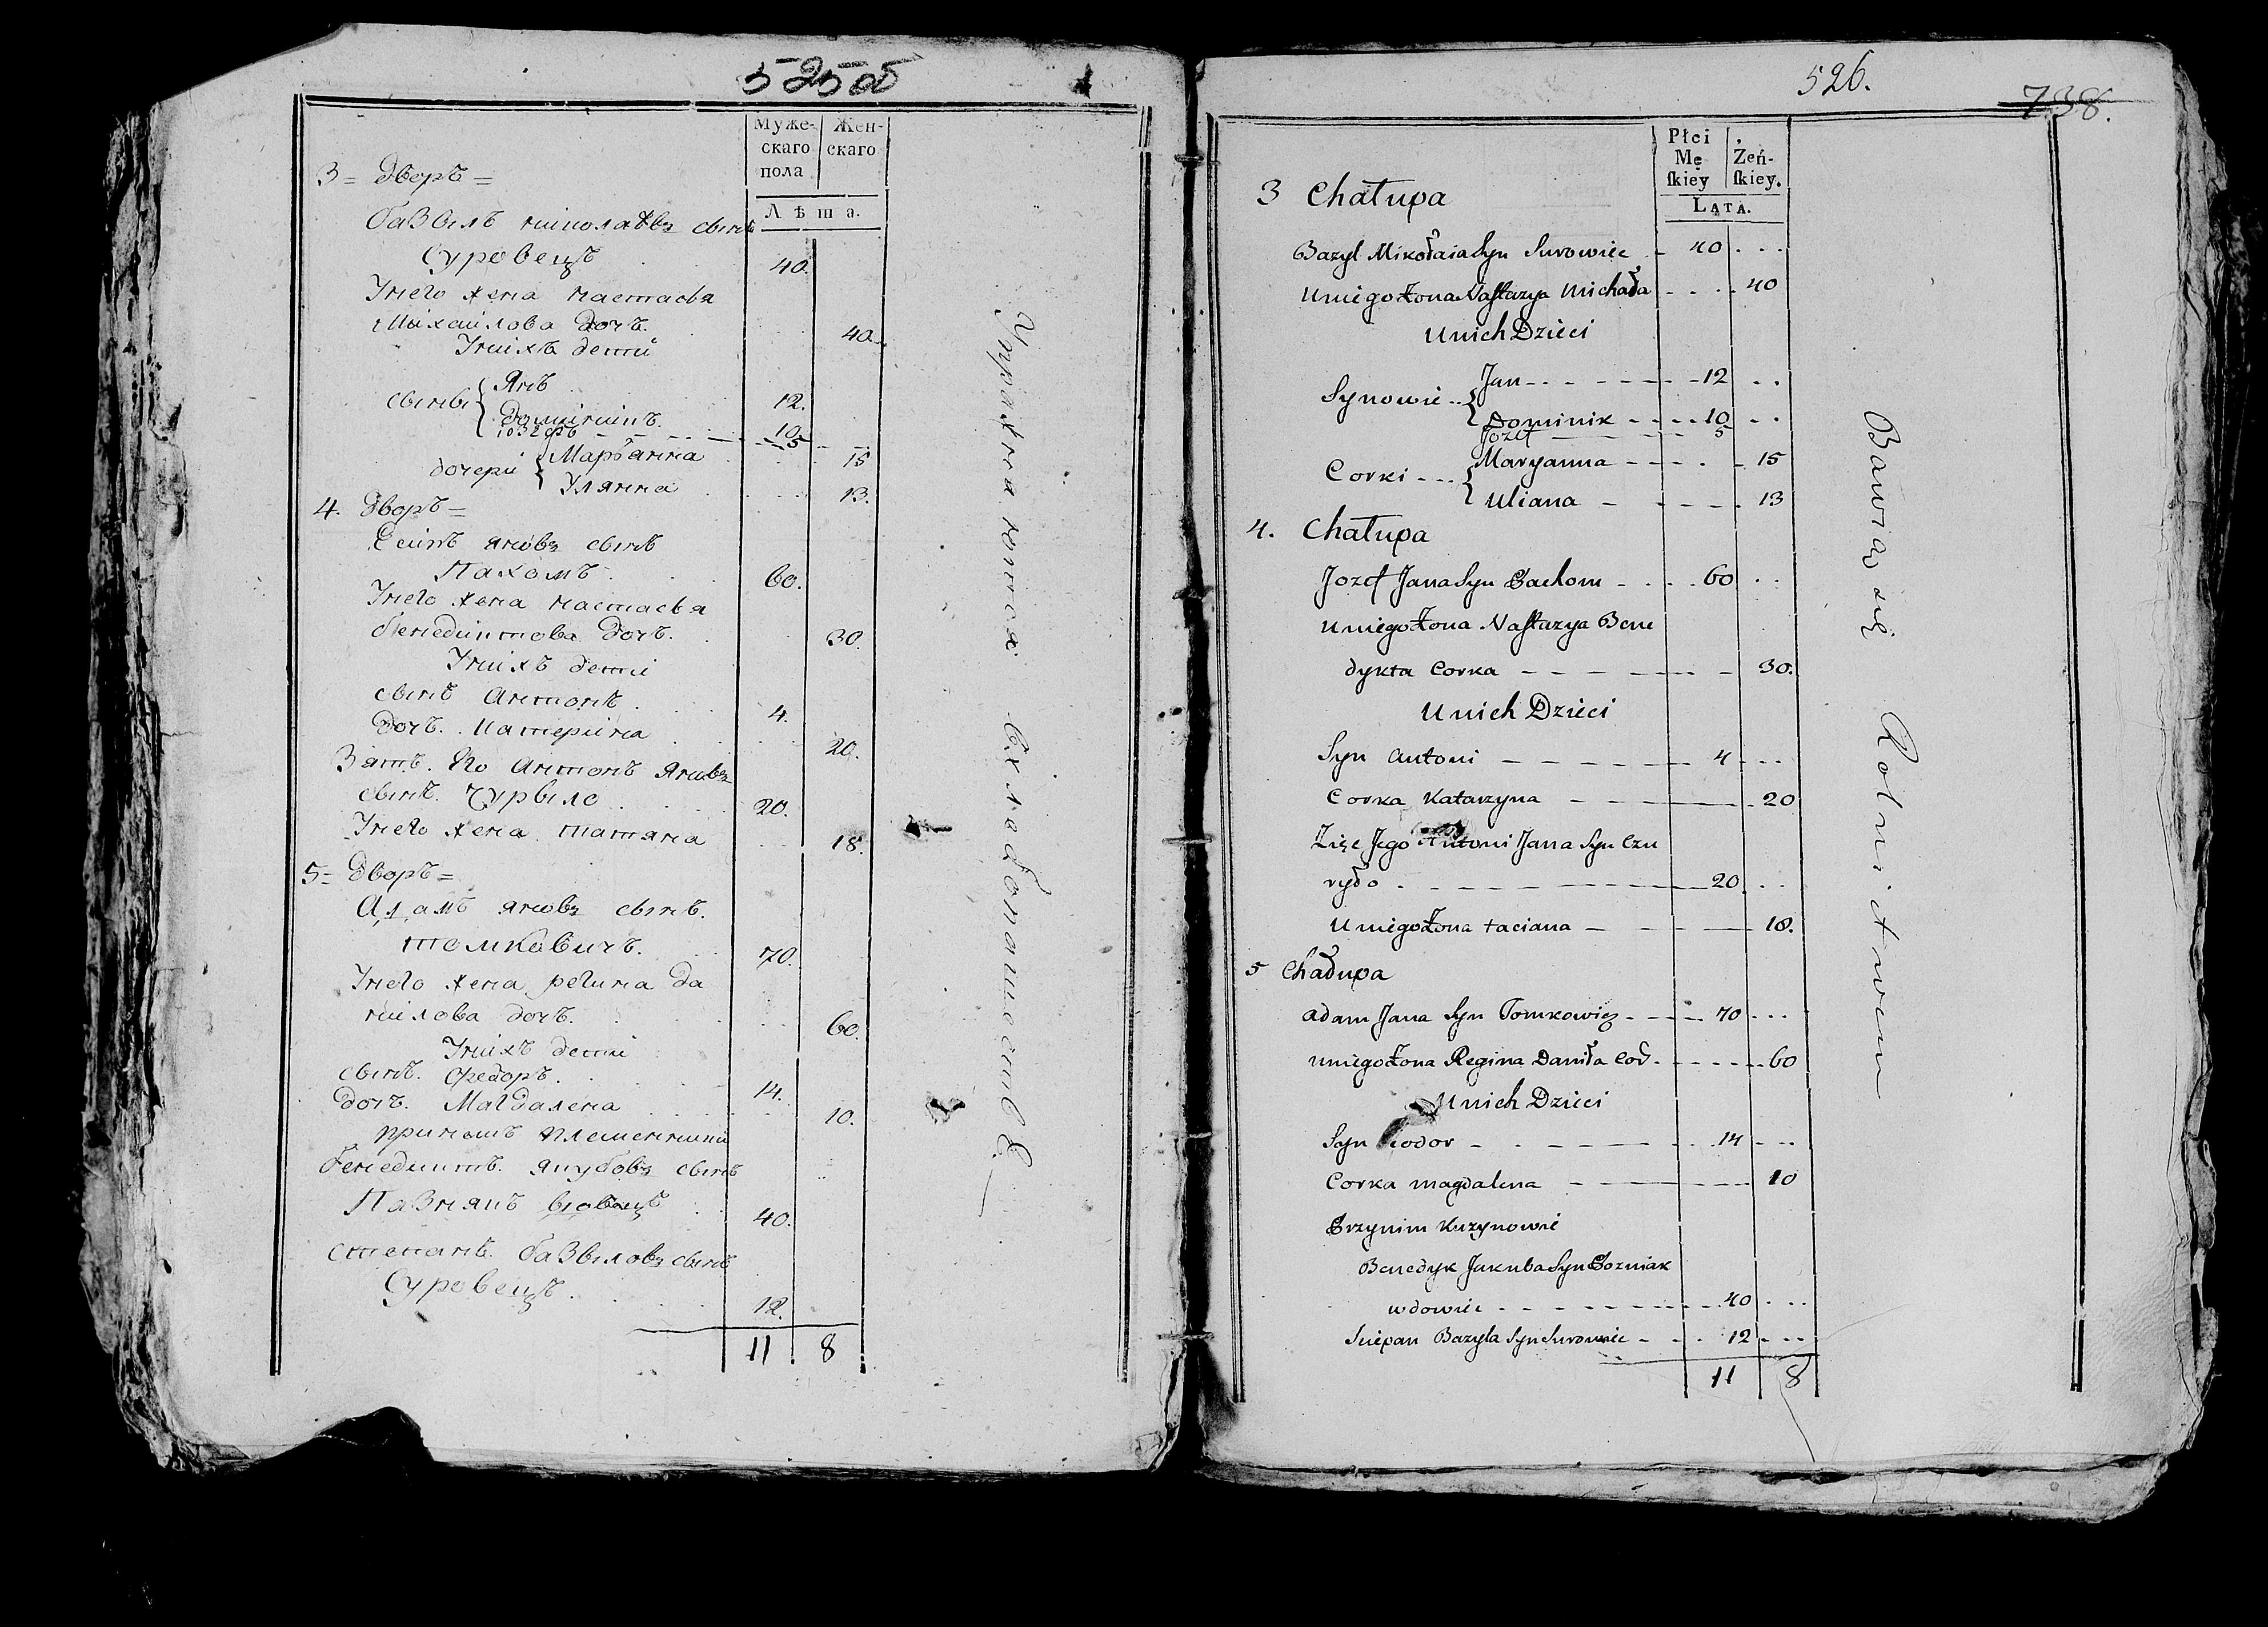 525 об
Муже-
скаго
пола
Жен-
скаго
Лѣта.
3 = дворъ =
базыль николаевъ сынъ
Суровецъ 40.
Унего жена настасья
Михайлова дочь. 40.
Унихъ дети
сыны Янъ 12.
Доминикъ. 10
юзефъ 5
дочери Марьянна 15
Улянна 13.
4. дворъ =
Есипъ яновъ сынъ
Пахомъ 60.
Унего жена настасья
бенедиктова дочь. 30.
Унихъ дети
сынъ антонъ 4.
дочь. катерина 20.
Зять. его антонъ яновъ
сынъ. чурыло 20.
Унего жена. татяна 18.
5 = дворъ =
Адамъ яновъ сынъ.
томковичъ. 70.
Унего жена регина да
нилова дочь. 60.
Унихъ дети
сынъ. Федоръ. 14.
дочь. Магдалена 10.
принемъ племенники
бенедиктъ. якубовъ сынъ
Позняяъ вдовецъ 40.
степанъ. базылевъ сынъ
Суровецъ. 12.
11 8
Упражняются въ хлебопашестве.
526.
738.
Płci
Mę
skiey
Zeń-
skiey.
LATA.
3 Chałupa
Bazyl Mikołaia Syn Surowiec 40
U niego Żona Nastazya Michała 40
U nich Dzieci
Synowie Jan 12
Dominik 10
Jozef 5
Corki Maryanna 15
Uliana 13
4. Chałupa
Jozef Jana Syn Pachom 60
U niego Żona Nastazya Bene
dykta Corka 30.
U nich Dzieci
Syn Antoni 4
Corka Katarzyna 20
Zięć Jego Antoni Jana Syn Czu
ryło 20
U niego Żona taciana 18.
5 Chałupa
Adam Jana Syn Tomkowicz 70
U niego Żona Regina Daniła Cor 60
U nich Dzieci
Syn Fiodor 14
Corka Magdalena 10
Przy nim Kuzynowie
Benedyk Jakuba Syn Pozniak
wdowiec 40
Sciepan Bazyla Syn Surowiec 12
11 8
Bawią się Rolnictwem